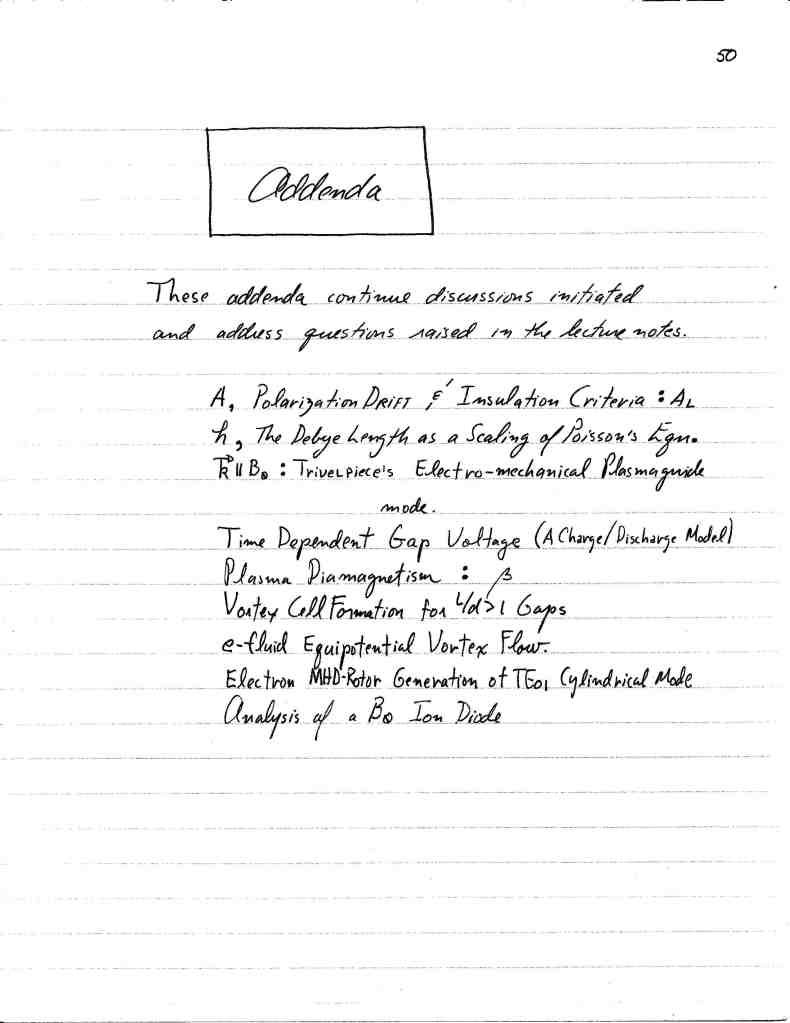 50
Addenda
These addenda continue discussions initiated
and address questions raised in the lecture notes.
A, Polarization DRIFT & Insulation Criteria : AL
h, The Debye Length as a Scaling of Poisson's Eqn.
k⃗ ‖ B₀ : TRIVELPIECE'S Electro-mechanical Plasmaguide
mode.
Time Dependent Gap Voltage (A Charge/Discharge Model)
Plasma Diamagnetism : β
Vortex Cell Formation for L/d>1 Gaps
e-fluid Equipotential Vortex Flow.
Electron MHD-Rotor Generation of TE01 Cylindrical Mode
Analysis of a Bθ Ion Diode